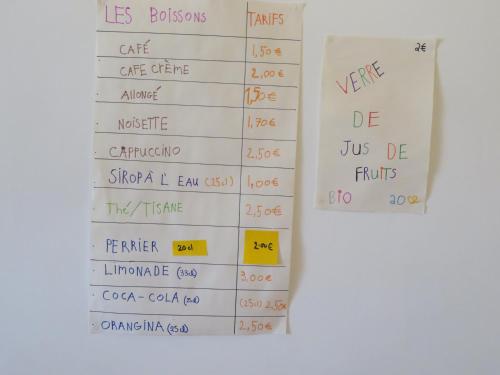 LES BOISSONS TARIFS
CAFÉ 1,50€
CAFE CRÈME 2,00€
ALLONGÉ 1,50€
NOISETTE 1,70€
CAPPUCCINO 2,50€
SIROP À L'EAU (25cl) 1,00€
Thé/TISANE 2,50€
PERRIER 20cl 2.00€
LIMONADE (33cl) 3,00€
COCA-COLA (25cl) 2,50€
ORANGINA (25cl) 2,50€
2€
VERRE
DE
JUS DE
FRUITS
BIO 20cl